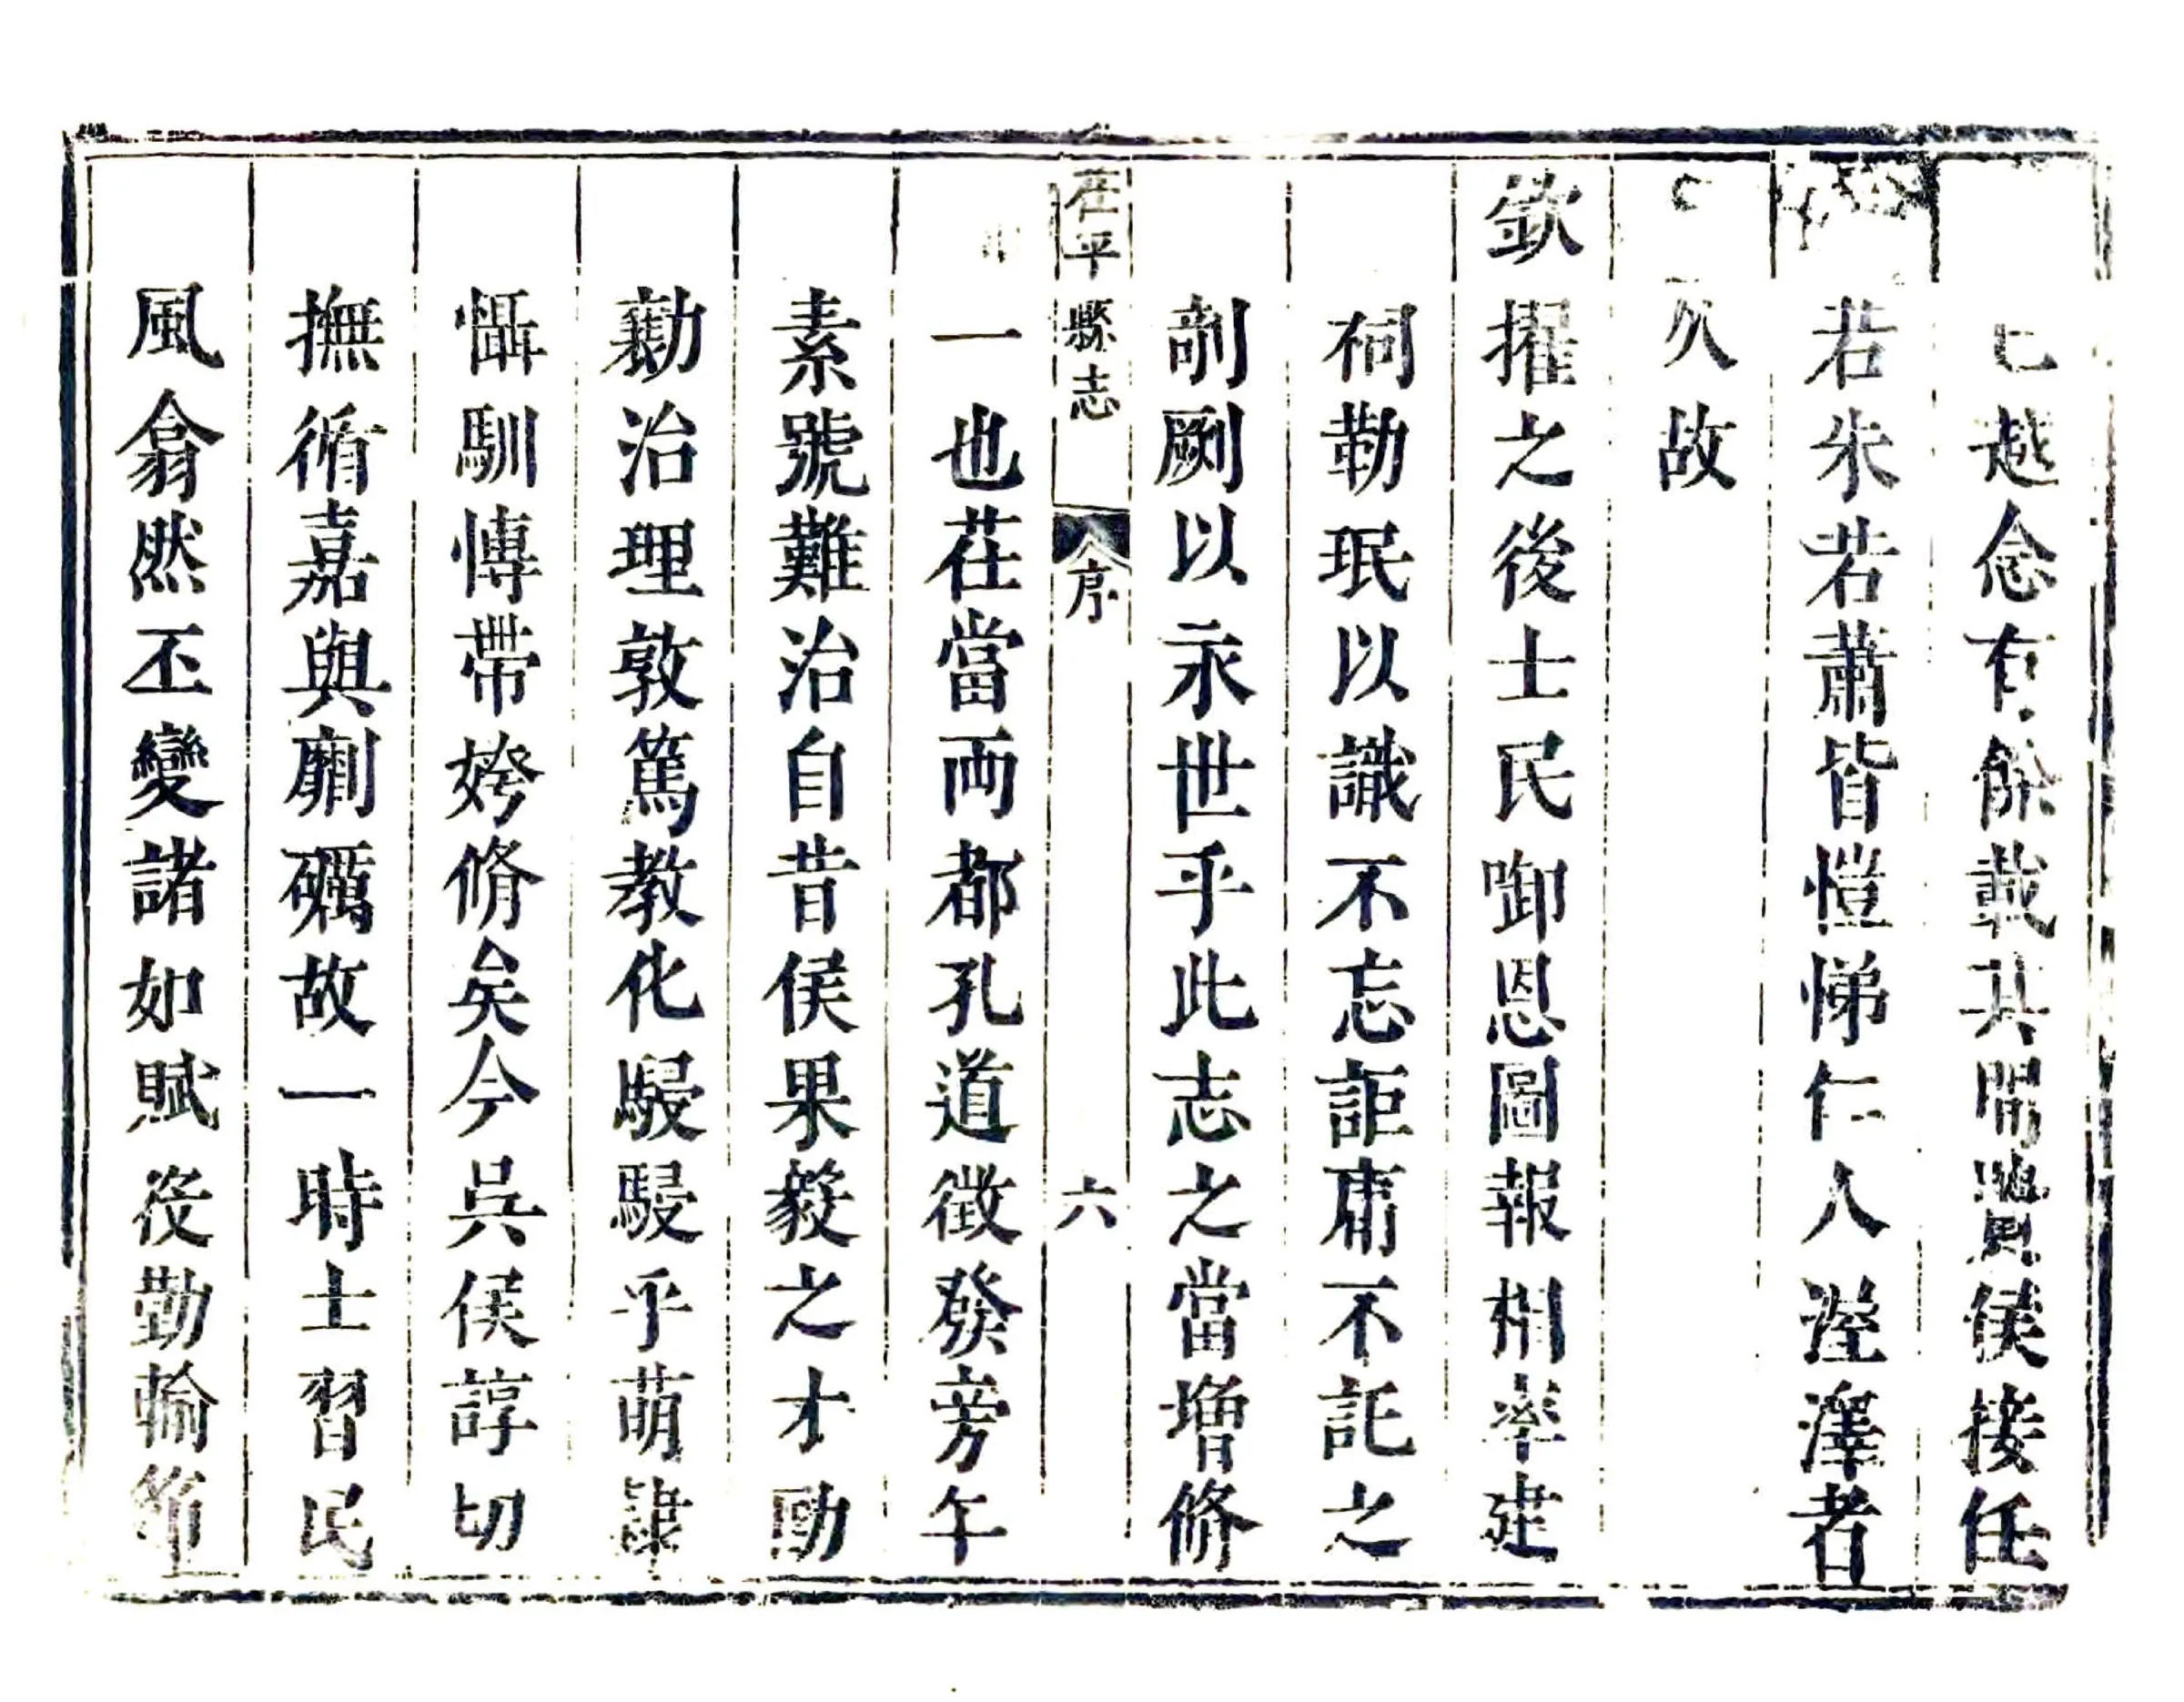 已越念有餘載其間賢侯接任
若朱若蕭皆愷悌仁人渥澤者
久故
欽擢之後士民啣恩圖報相率建
祠勒珉以識不忘詎庸不託之
剞劂以永世乎此志之當增修
茌平縣志 序 六
一也茌當两都孔道徵發旁午
素號難治自昔侯果毅之才勵
勷治理敦篤教化駸駸乎萌隸
懾馴慱帶姱脩矣今呉侯諄切
撫循嘉與劘礪故一時士習民
風翕然丕變諸如賦役勤輸